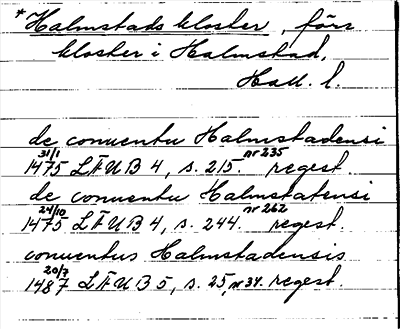 *Halmstads kloster, förr
kloster i Halmstad,
Hall. l.
de conventu Halmstadensi
31/1 1475 LÄUB 4, s. 215. nr 235 regest.
de conventu Halmstatensi
24/10 1475 LÄUB 4, s. 244. nr 262 regest.
conventus Halmstadensis
20/7 1487 LÄUB 5, s. 25, nr 34. regest.